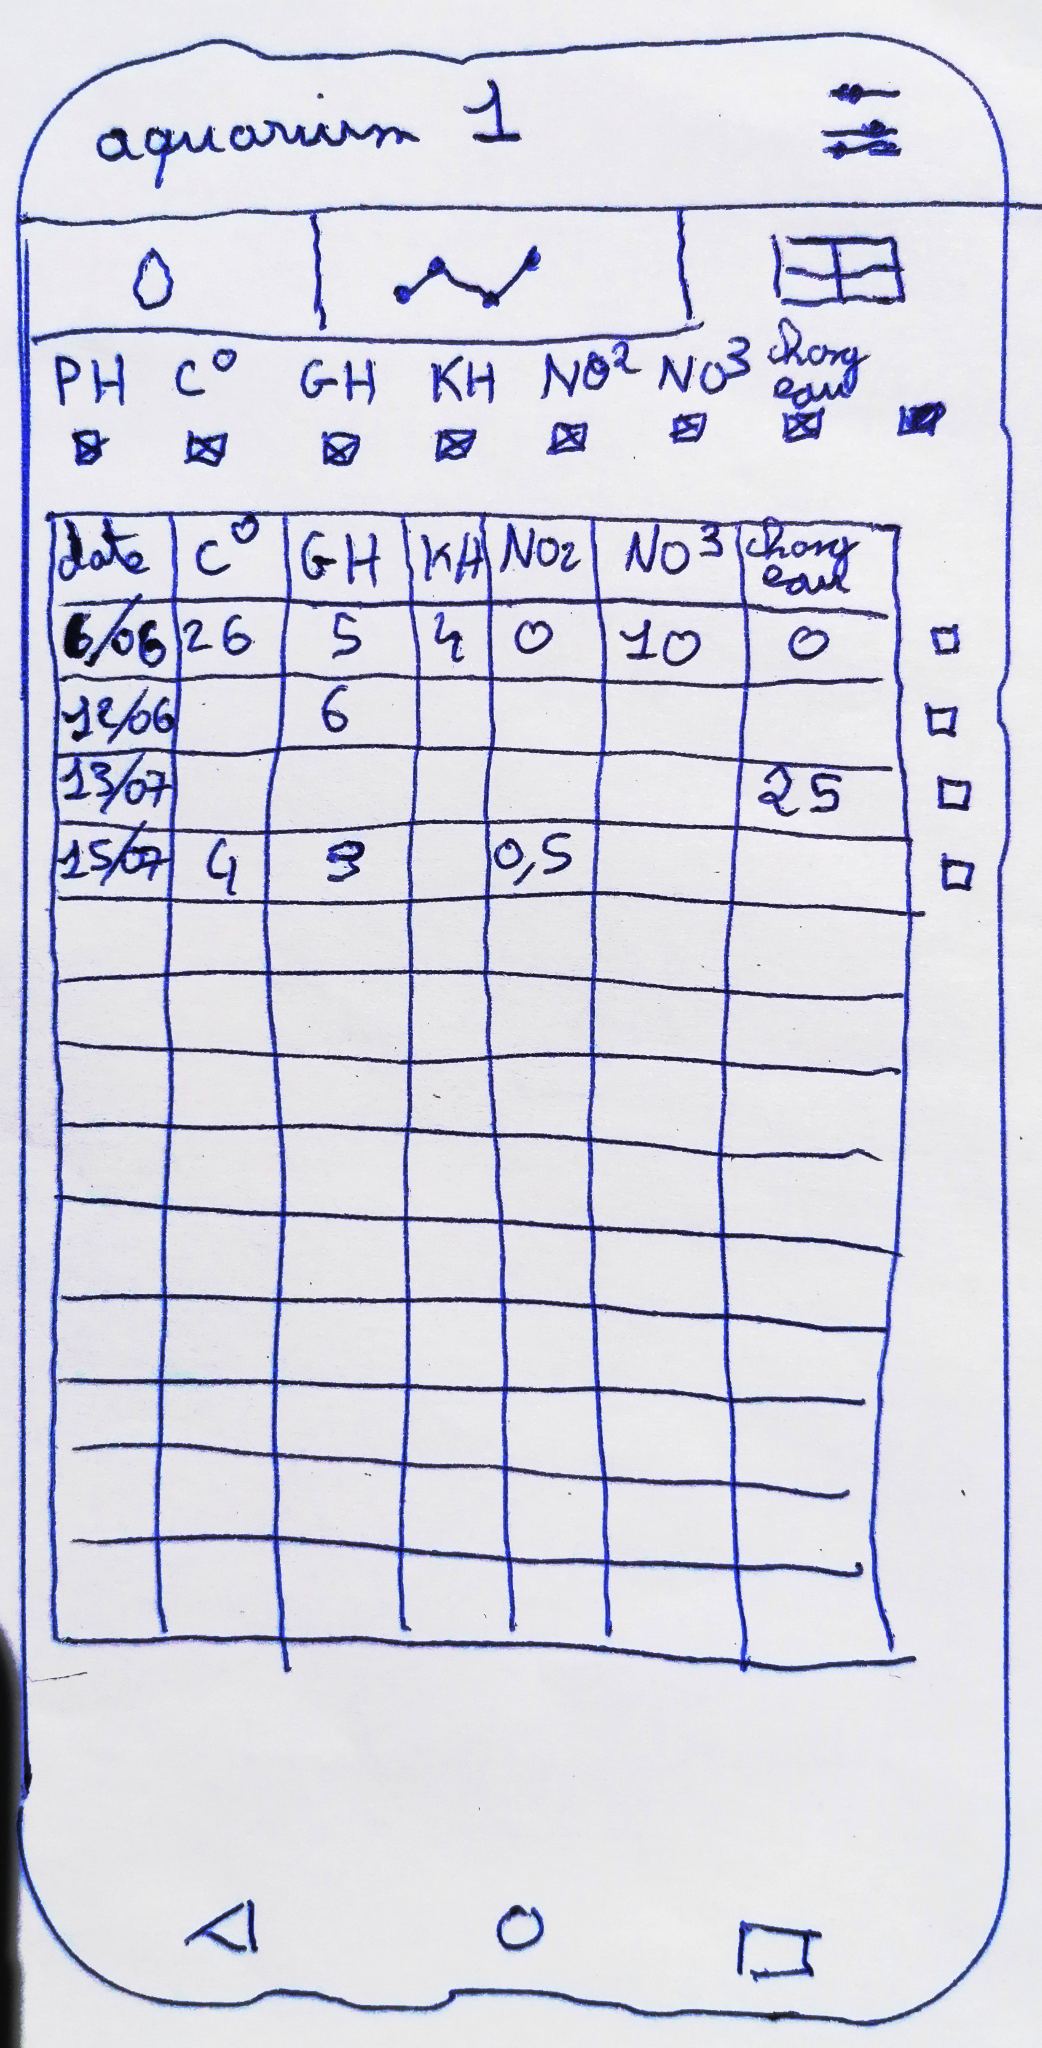 aquarium 1
PH C° GH KH NO² NO³ chang eau
date C° GH KH NO2 NO³ chang eau
6/06 26 5 4 0 10 0
12/06 6
13/07 25
15/07 4 3 0,5